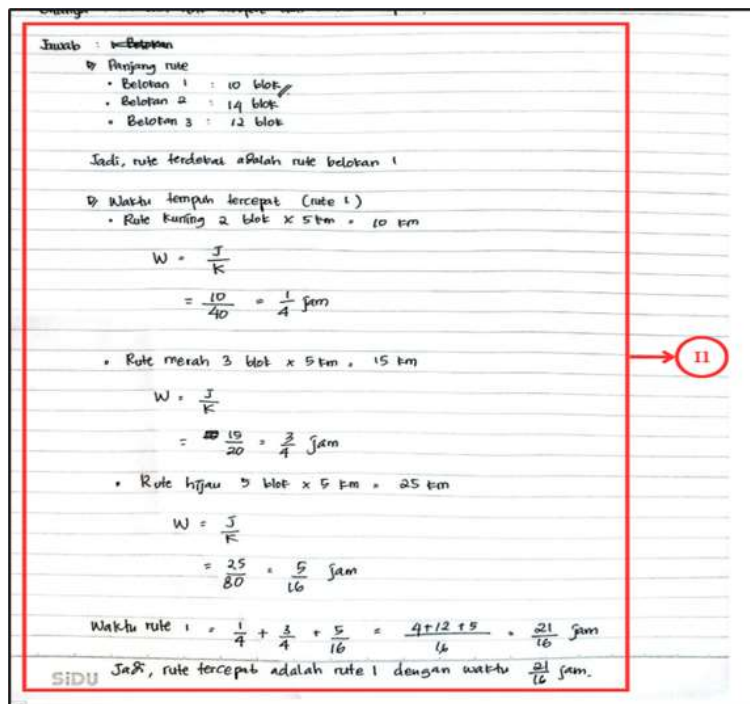 Jawab :
▷ Panjang rute
• Belokan 1 : 10 blok
• Belokan 2 : 14 blok
• Belokan 3 : 12 blok
Jadi, rute terdekat adalah rute belokan 1
▷ Waktu tempuh tercepat (rute 1)
• Rute kuning 2 blok × 5 km = 10 km
W = J/K
= 10/40 = 1/4 jam
• Rute merah 3 blok × 5 km = 15 km
I1
W = J/K
= 15/20 = 3/4 jam
• Rute hijau 5 blok × 5 km = 25 km
W = J/K
= 25/80 = 5/16 jam
Waktu rute 1 = 1/4 + 3/4 + 5/16 = 4+12+5/16 = 21/16 jam
Jadi, rute tercepat adalah rute 1 dengan waktu 21/16 jam.
SiDU